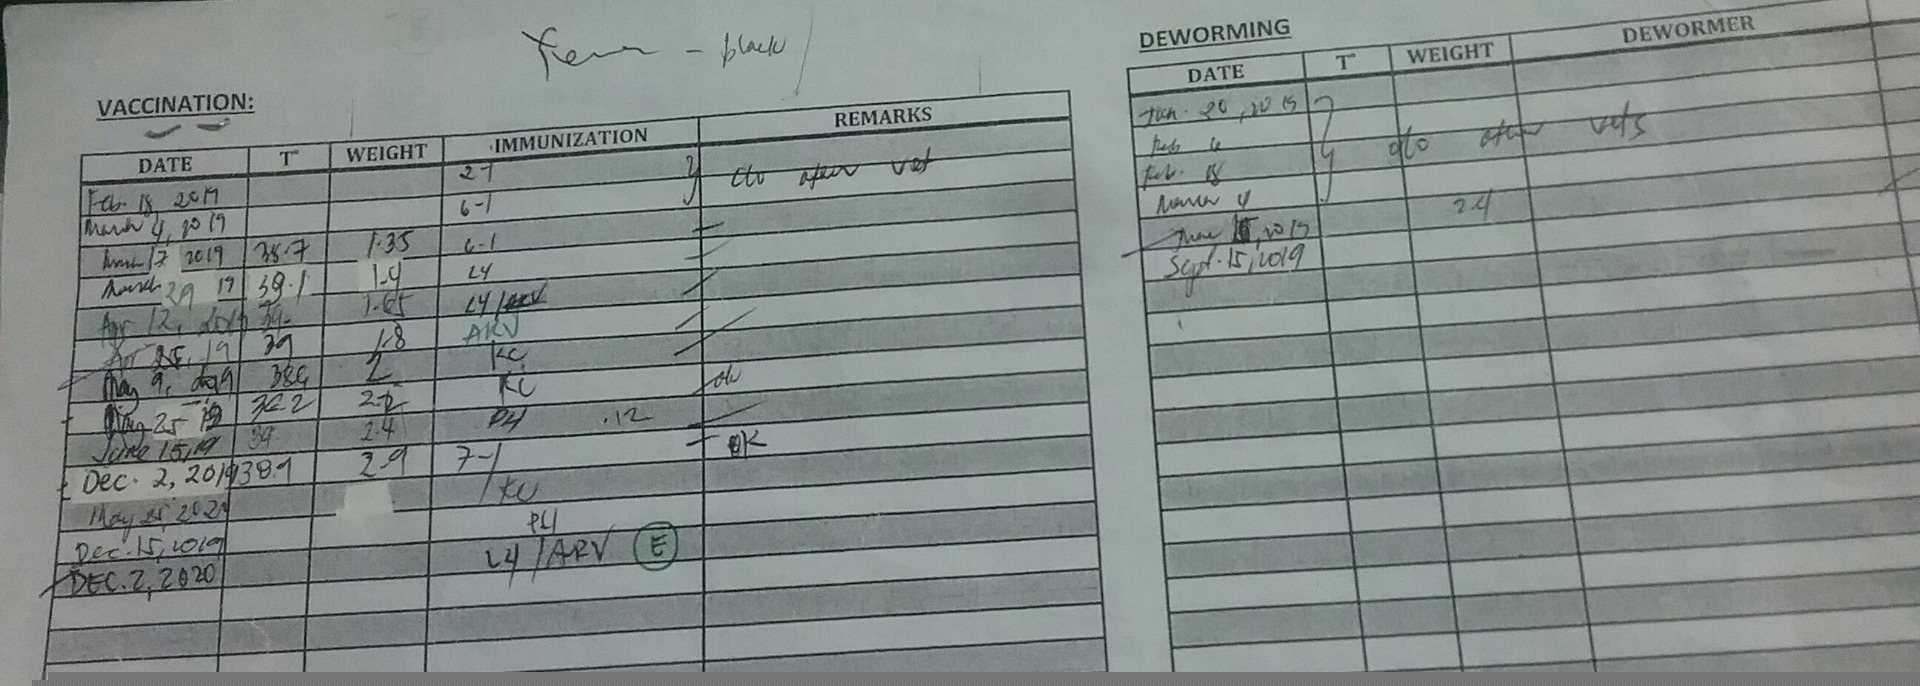 black
VACCINATION:
DATE T° WEIGHT IMMUNIZATION REMARKS
Feb. 18 2019 2-1 c/o other vet
March 4, 2019 6-1
17 2019 38.7 1.35 6-1
March 29 19 38.1 1.4 L4
Apr 12, 2019 39. 1.65 L4/ARV
Apr 25, 19 39 1.8 ARV
May 9, 2019 2 KC
May 25 19 2.2 KC
June 15, 19 39 2.4 P4 .12
Dec. 2, 2019 38.9 2.9 7-1 OK
May 2020 / KC
Dec. 15, 2019 P4
DEC. 2, 2020 L4 / ARV E
DEWORMING
DATE T° WEIGHT DEWORMER
Jan. 20, 2019
Feb 4 c/o other vets
Feb. 18
March 4
June 15, 2019 2.4
Sept. 15, 2019